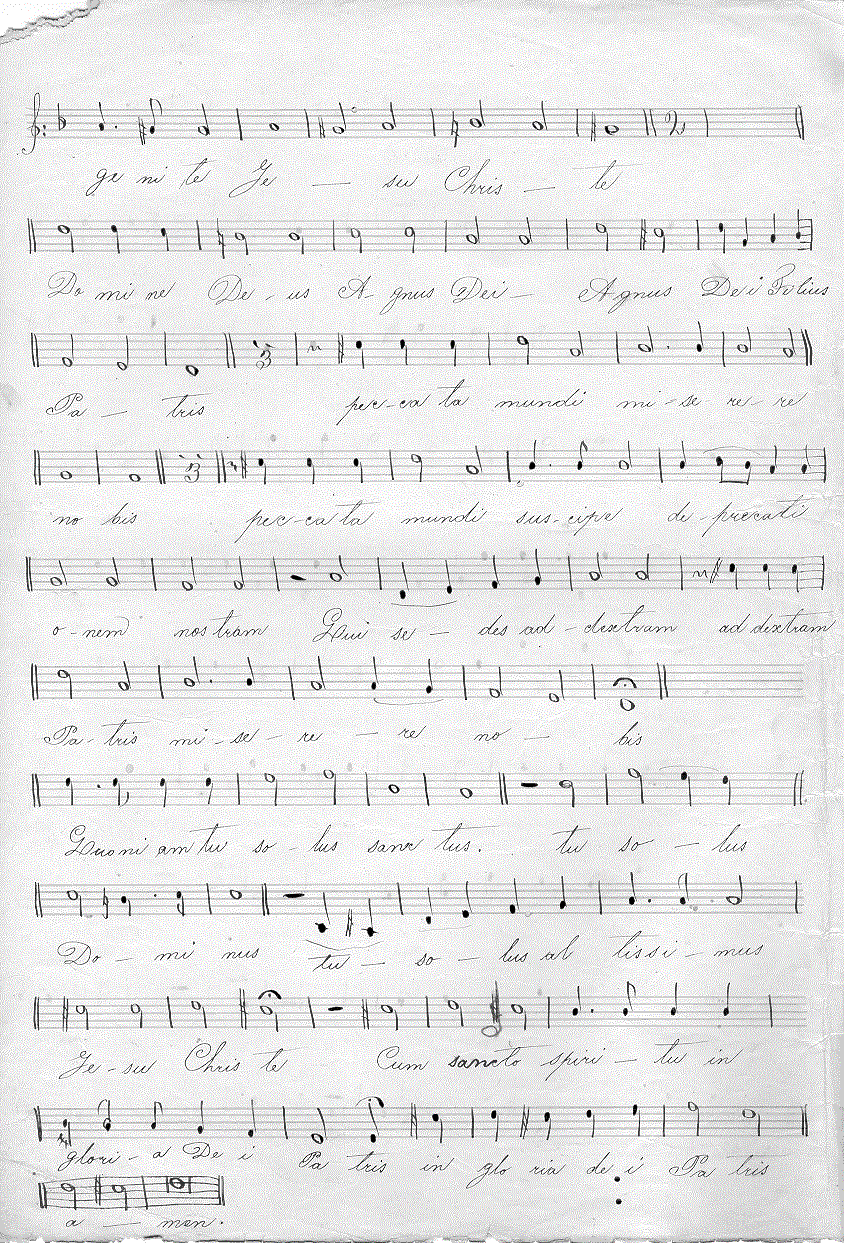 ge ni te Je — su Chris — te
Do mi ne De - us A - gnus Dei — Agnus Dei Filius
Pa — tris pec-ca ta mundi mi - se - re - re
no bis pec-ca ta mundi sus-cipe de-precati
o - nem nostram Qui se — des ad - dextram ad dextram
Pa - tris mi - se - re — re no — bis
Quoni am tu so - lus sanc tus. tu so — lus
Do — mi nus tu — so — lus al tissi - mus
Je - su Chris te Cum sancto spiri — tu in
glori - a De i Pa tris in glo ria de i Pa tris
a — men.